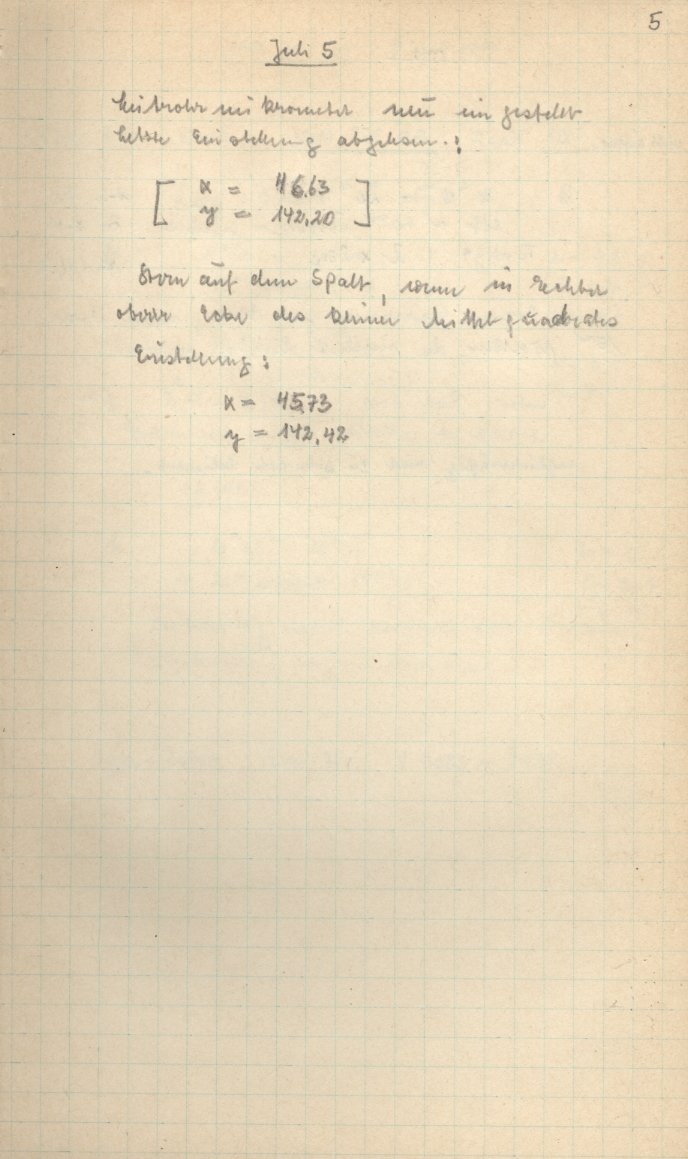 5
Juli 5
Leitrohrmikrometer neu eingestellt
Letzte Einstellung abgelesen.:
[ x = 46.63
y = 142,20 ]
Stern auf dem Spalt, wenn in rechter
oberer Ecke des kleinen Mittelquadrates
Einstellung:
x = 45,73
y = 142,42